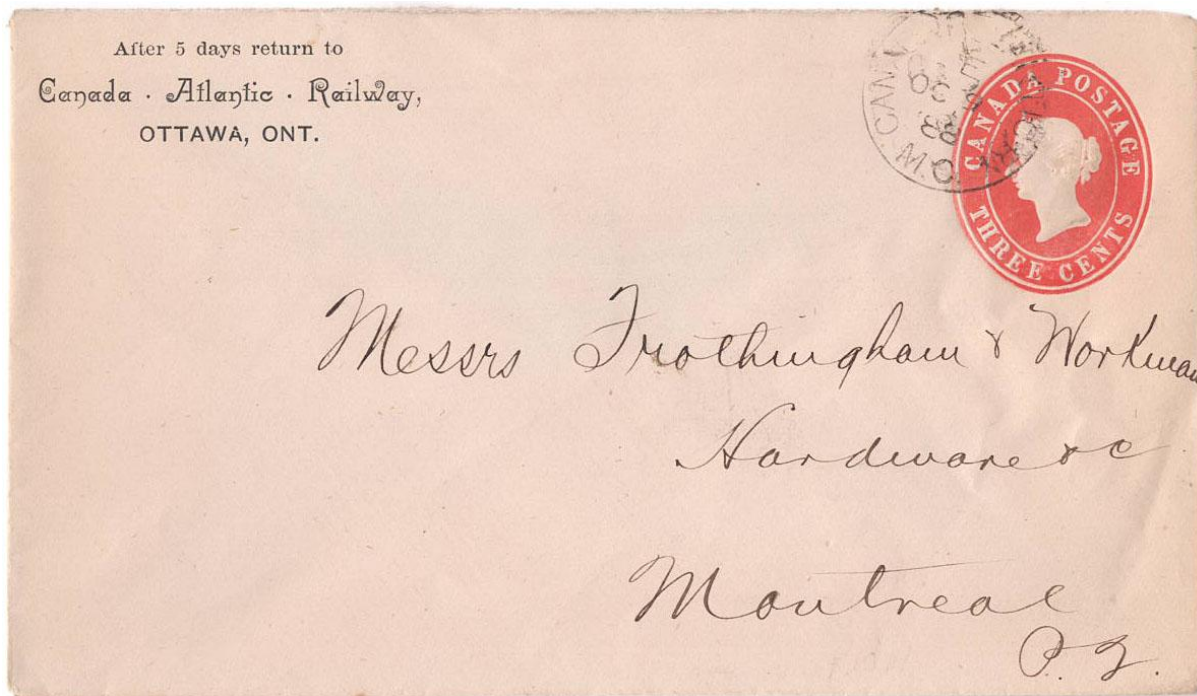 After 5 days return to
Canada · Atlantic · Railway,
OTTAWA, ONT.
CANADA POSTAGE
THREE CENTS
Messrs Frothingham & Workman
Hardware &c
Montreal
P. Q.